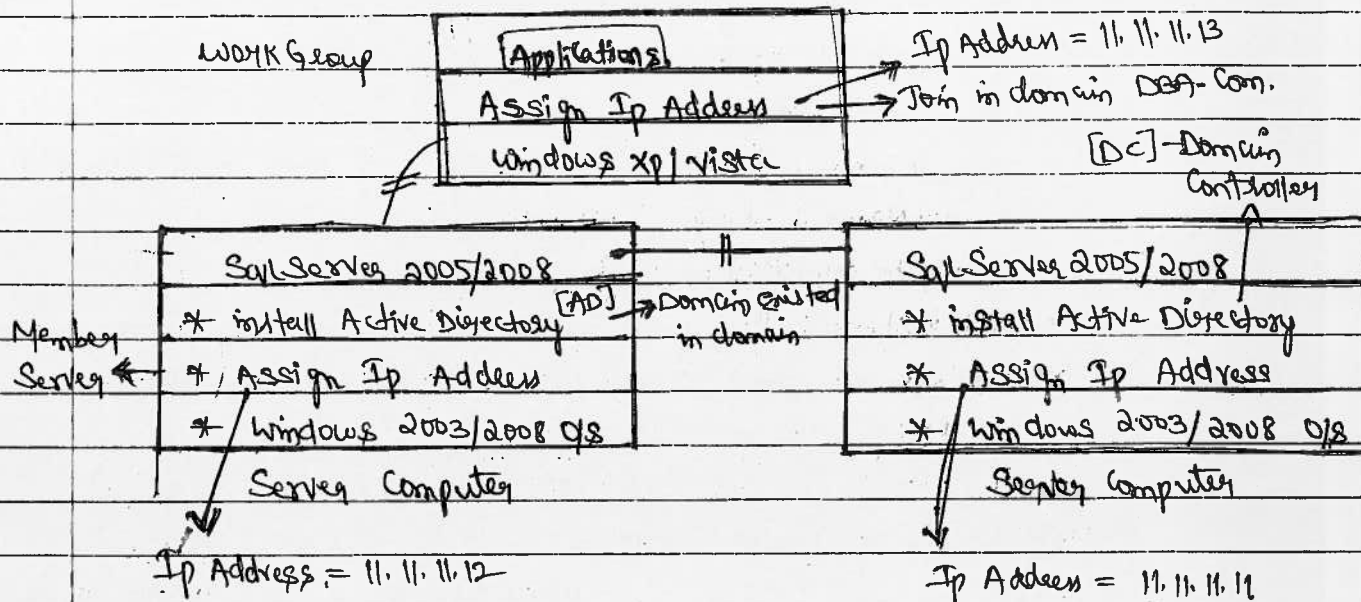 Work Group
[Applications]
Assign Ip Address
windows xp/vista
Ip Address = 11.11.11.13
Join in domain DBA-Com.
[DC]-Domain
Controller
Sql Server 2005/2008
* install Active Directory
* Assign Ip Address
* windows 2003/2008 O/S
Server Computer
Member
Server
[AD]
Domain existed
in domain
Sql Server 2005/2008
* install Active Directory
* Assign Ip Address
* windows 2003/2008 O/S
Server Computer
Ip Address = 11.11.11.12
Ip Address = 11.11.11.11